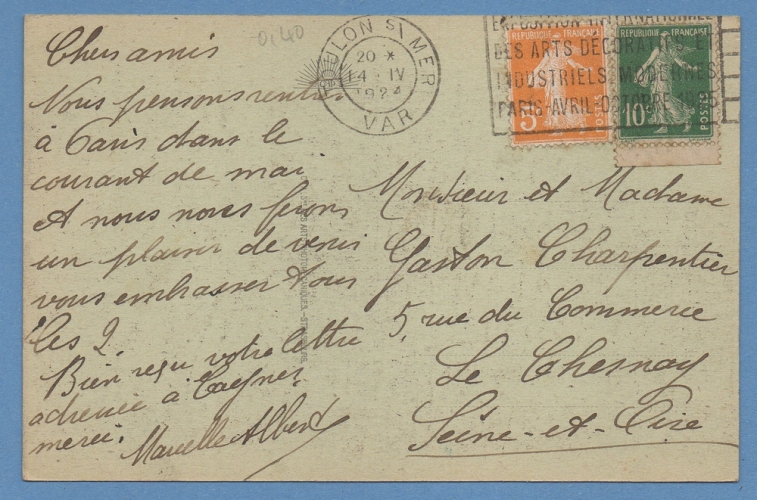 0,40
TOULON S/ MER
20 *
14 - IV
1924
VAR
EXPOSITION INTERNATIONALE
DES ARTS DECORATIFS ET
INDUSTRIELS MODERNES
PARIS AVRIL-OCTOBRE 1925
REPUBLIQUE FRANÇAISE
5c
POSTES
REPUBLIQUE FRANÇAISE
10c
POSTES
Chers amis
Nous pensons rentrer
à Paris dans le
courant de mai
et nous nous ferons
un plaisir de venir
vous embrasser tous
les 2.
Bien reçu votre lettre
adressée à Cagnes,
merci.
Marcelle Albert
Monsieur et Madame
Gaston Charpentier
5, rue du Commerce
Le Chesnay
Seine-et-Oise